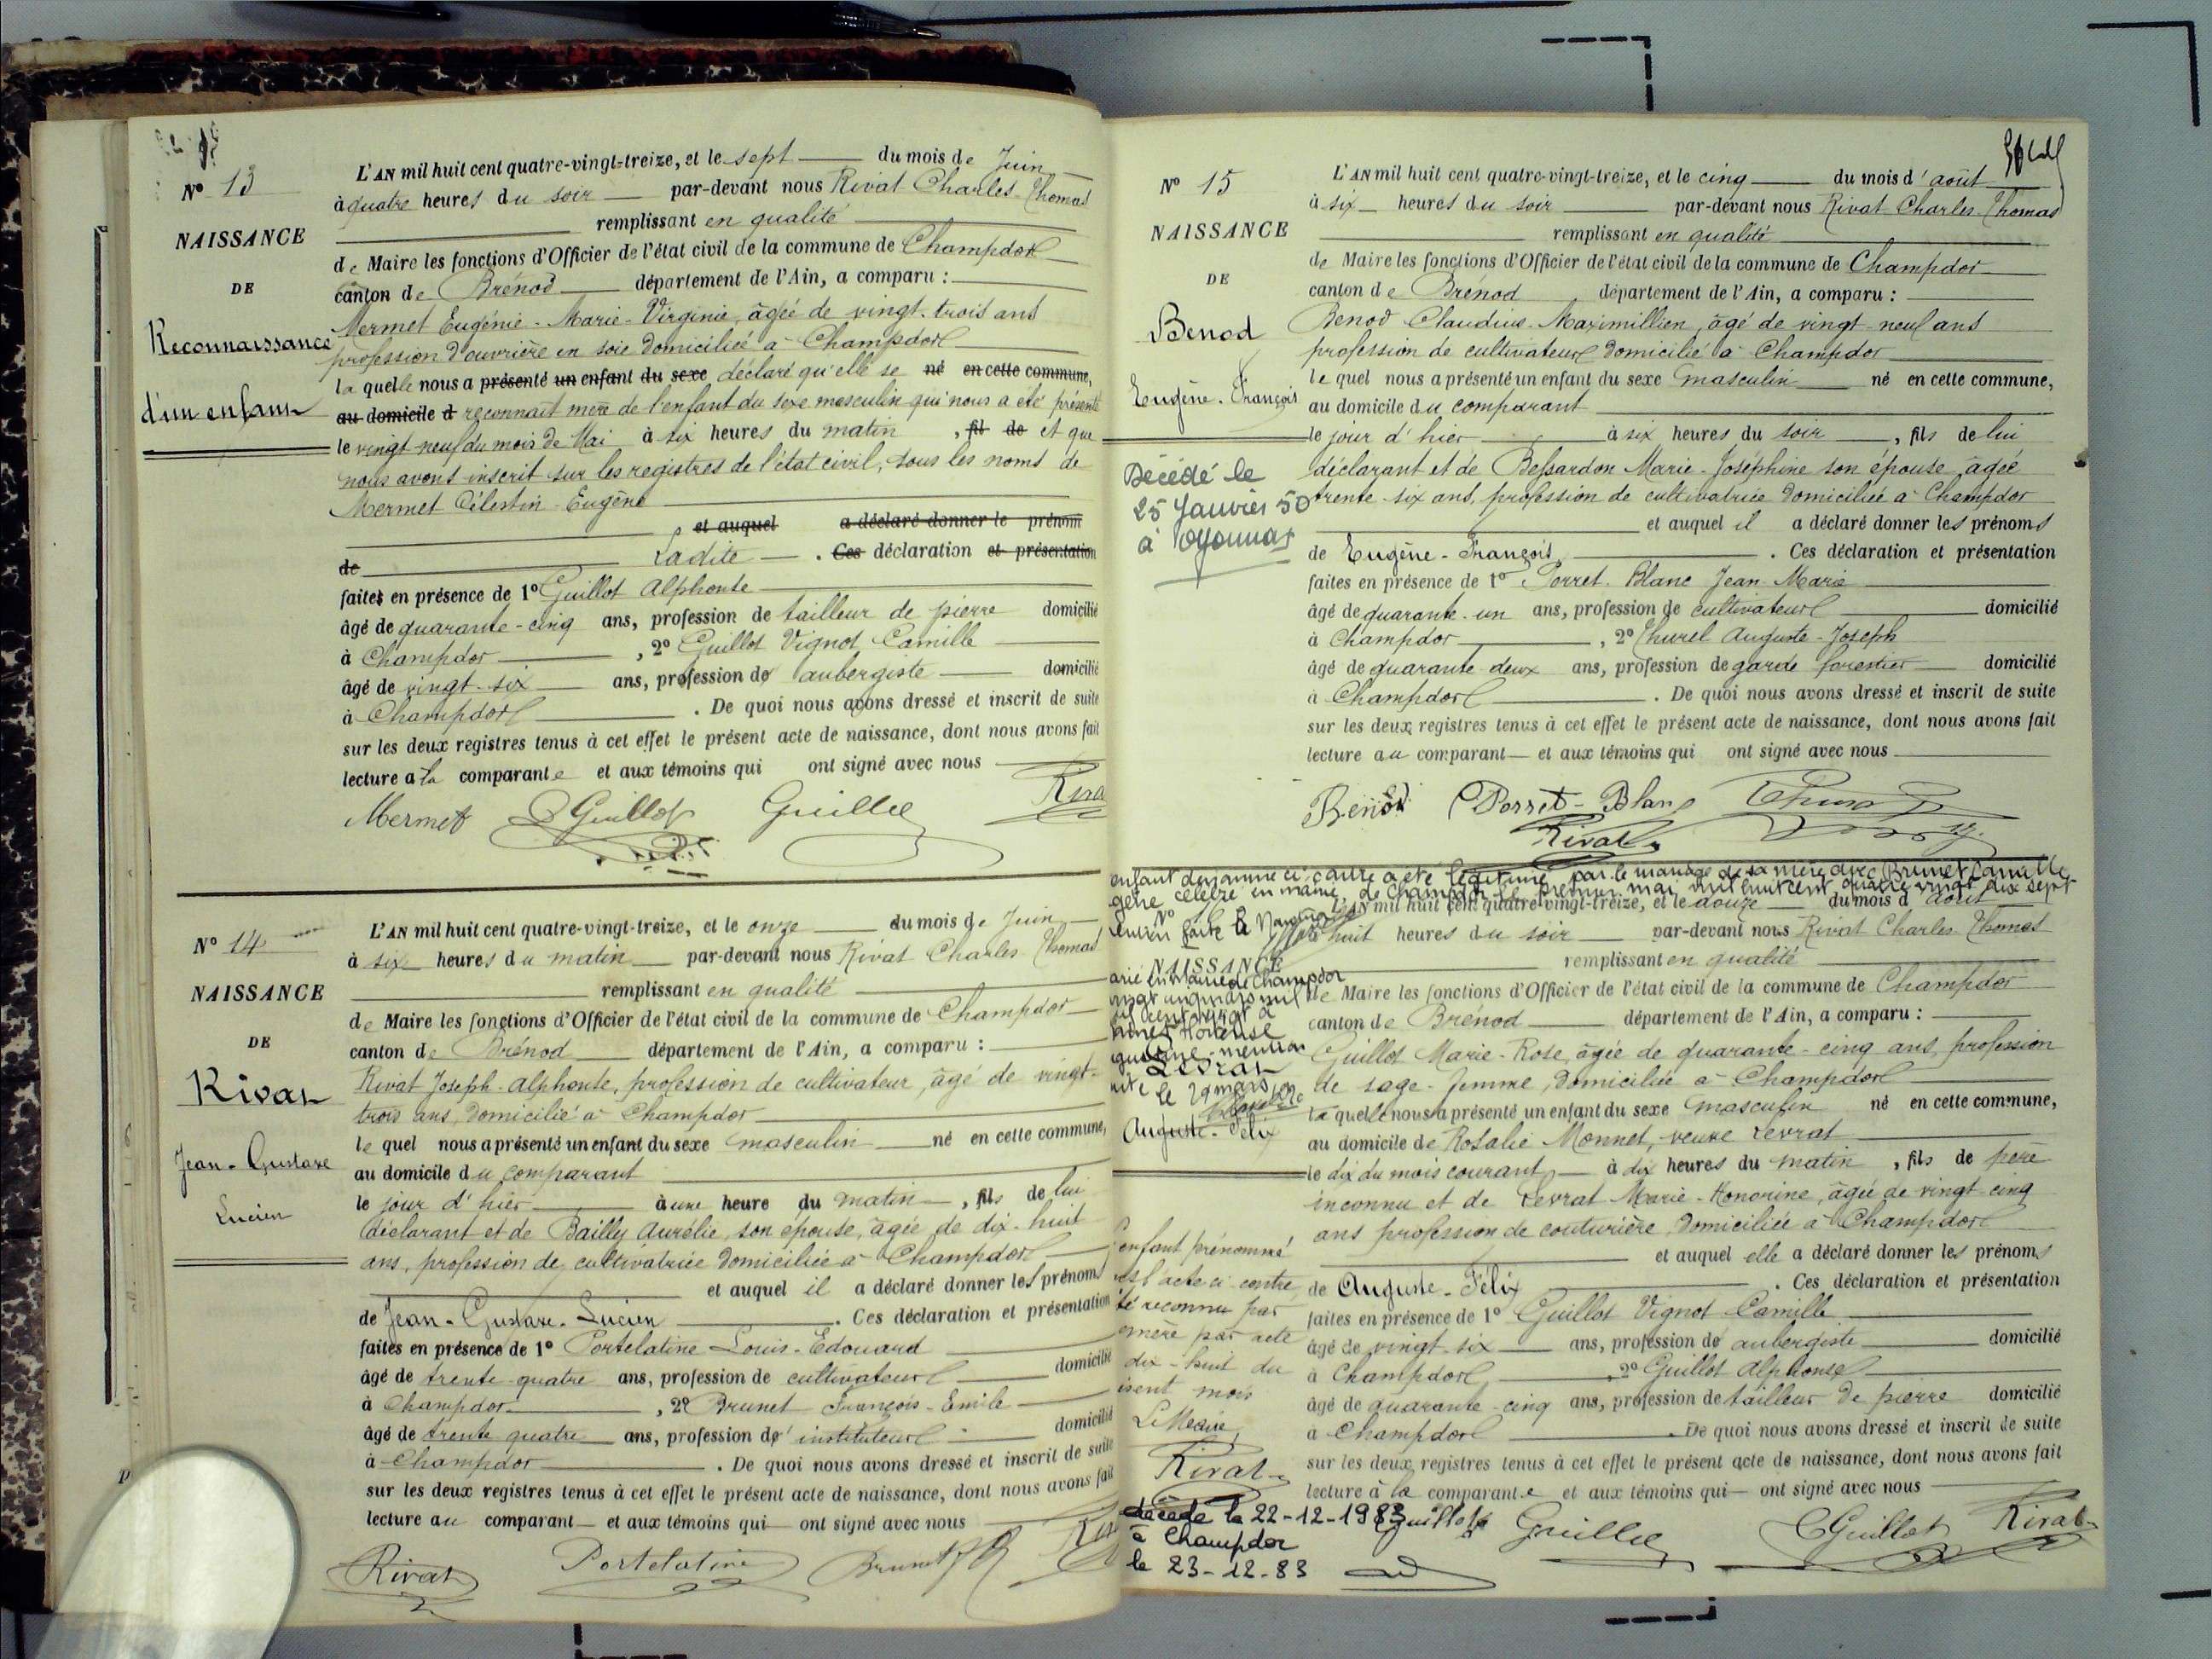 N° 13
NAISSANCE
DE
Reconnaissance
d'un enfant
L'AN mil huit cent quatre-vingt-treize, et le sept du mois de Juin
à quatre heures du soir par-devant nous Rivat Charles-Thomas
remplissant en qualité
de Maire les fonctions d'Officier de l'état civil de la commune de Champdor
canton de Brénod département de l'Ain, a comparu :
Mermet Eugénie-Marie-Virginie, âgée de vingt-trois ans
profession d'ouvrière en soie domiciliée à Champdor
la quelle nous a présenté un enfant du sexe déclaré qu'elle se né en cette commune,
au domicile d reconnait mère de l'enfant du sexe masculin qui nous a été présenté
le vingt-neuf du mois de Mai à six heures du matin , fil de et que
nous avons inscrit sur les registres de l'état civil, sous les noms de
Mermet Célestin-Eugène
et auquel a déclaré donner le prénom
de Ladite . Ces déclaration et présentation
faites en présence de 1° Guillot Alphonse
âgé de quarante-cinq ans, profession de tailleur de pierre domicilié
à Champdor , 2° Guillot Vignot Camille
âgé de vingt-six ans, profession de aubergiste domicilié
à Champdor . De quoi nous avons dressé et inscrit de suite
sur les deux registres tenus à cet effet le présent acte de naissance, dont nous avons fait
lecture à la comparante et aux témoins qui ont signé avec nous
Mermet Guillot Guillot
N° 14
NAISSANCE
DE
Rivat
Jean-Gustave
Lucien
L'AN mil huit cent quatre-vingt-treize, et le onze du mois de Juin
à six heures du matin par-devant nous Rivat Charles-Thomas
remplissant en qualité
de Maire les fonctions d'Officier de l'état civil de la commune de Champdor
canton de Brénod département de l'Ain, a comparu :
Rivat Joseph-Alphonse, profession de cultivateur, âgé de vingt-
trois ans, domicilié à Champdor
le quel nous a présenté un enfant du sexe masculin né en cette commune,
au domicile du comparant
le jour d'hier à une heure du matin , fils de lui
déclarant et de Bailly Aurélie, son épouse, âgée de dix-huit
ans, profession de cultivatrice domiciliée à Champdor
et auquel il a déclaré donner les prénoms
de Jean-Gustave-Lucien . Ces déclaration et présentation
faites en présence de 1° Portelatine Louis-Edouard
âgé de trente-quatre ans, profession de cultivateur domicilié
à Champdor , 2° Brunet François-Emile
âgé de trente quatre ans, profession d' instituteur domicilié
à Champdor . De quoi nous avons dressé et inscrit de suite
sur les deux registres tenus à cet effet le présent acte de naissance, dont nous avons fait
lecture au comparant et aux témoins qui ont signé avec nous
Rivat Portelatine Brunet
N° 15
NAISSANCE
DE
Benod
Eugène-François
Décédé le
25 Janvier 50
à Oyonnax
L'AN mil huit cent quatre-vingt-treize, et le cinq du mois d'août
à six heures du soir par-devant nous Rivat Charles-Thomas
remplissant en qualité
de Maire les fonctions d'Officier de l'état civil de la commune de Champdor
canton de Brénod département de l'Ain, a comparu :
Benod Claudius-Maximillien, âgé de vingt-neuf ans
profession de cultivateur domicilié à Champdor
le quel nous a présenté un enfant du sexe masculin né en cette commune,
au domicile du comparant
le jour d'hier à six heures du soir , fils de lui
déclarant et de Bessardon Marie-Joséphine son épouse, âgée
trente-six ans, profession de cultivatrice domiciliée à Champdor
et auquel il a déclaré donner les prénoms
de Eugène-François . Ces déclaration et présentation
faites en présence de 1° Perret-Blanc Jean-Marie
âgé de quarante-un ans, profession de cultivateur domicilié
à Champdor , 2° Thurel Auguste-Joseph
âgé de quarante deux ans, profession de garde forestier domicilié
à Champdor . De quoi nous avons dressé et inscrit de suite
sur les deux registres tenus à cet effet le présent acte de naissance, dont nous avons fait
lecture au comparant et aux témoins qui ont signé avec nous
Benod Perret-Blanc
Rivat
enfant dénommé ci-contre a été légitimé par le mariage de sa mère avec Brunet Camille
célébré en mairie de Champdor le premier mai mil huit cent quatre vingt dix sept
N°
NAISSANCE
arié en Mairie de Champdor
vingt un mars mil
Hortense
mention
Levrat
le 29 mars
Auguste-Félix
L'AN mil huit cent quatre-vingt-treize, et le douze du mois d'août
à huit heures du soir par-devant nous Rivat Charles-Thomas
remplissant en qualité
de Maire les fonctions d'Officier de l'état civil de la commune de Champdor
canton de Brénod département de l'Ain, a comparu :
Guillot Marie-Rose, âgée de quarante-cinq ans, profession
de sage-femme, domiciliée à Champdor
la quelle nous a présenté un enfant du sexe masculin né en cette commune,
au domicile de Rosalie Monnet, veuve Levrat
le dix du mois courant à dix heures du matin , fils de père
inconnu et de Levrat Marie-Honorine, âgée de vingt-cinq
ans profession de couturière, domiciliée à Champdor
et auquel elle a déclaré donner les prénoms
de Auguste-Félix . Ces déclaration et présentation
faites en présence de 1° Guillot Vignot Camille
âgé de vingt-six ans, profession de aubergiste domicilié
à Champdor , 2° Guillot Alphonse
âgé de quarante-cinq ans, profession de tailleur de pierre domicilié
à Champdor . De quoi nous avons dressé et inscrit de suite
sur les deux registres tenus à cet effet le présent acte de naissance, dont nous avons fait
lecture à la comparante et aux témoins qui ont signé avec nous
enfant prénommé
l'acte ci-contre
té reconnu par
mère par acte
dix-huit du
mois
Le Maire,
Rivat
décédé le 22-12-1983
à Champdor
le 23-12-83
Guillot Guillot Guillot Rivat